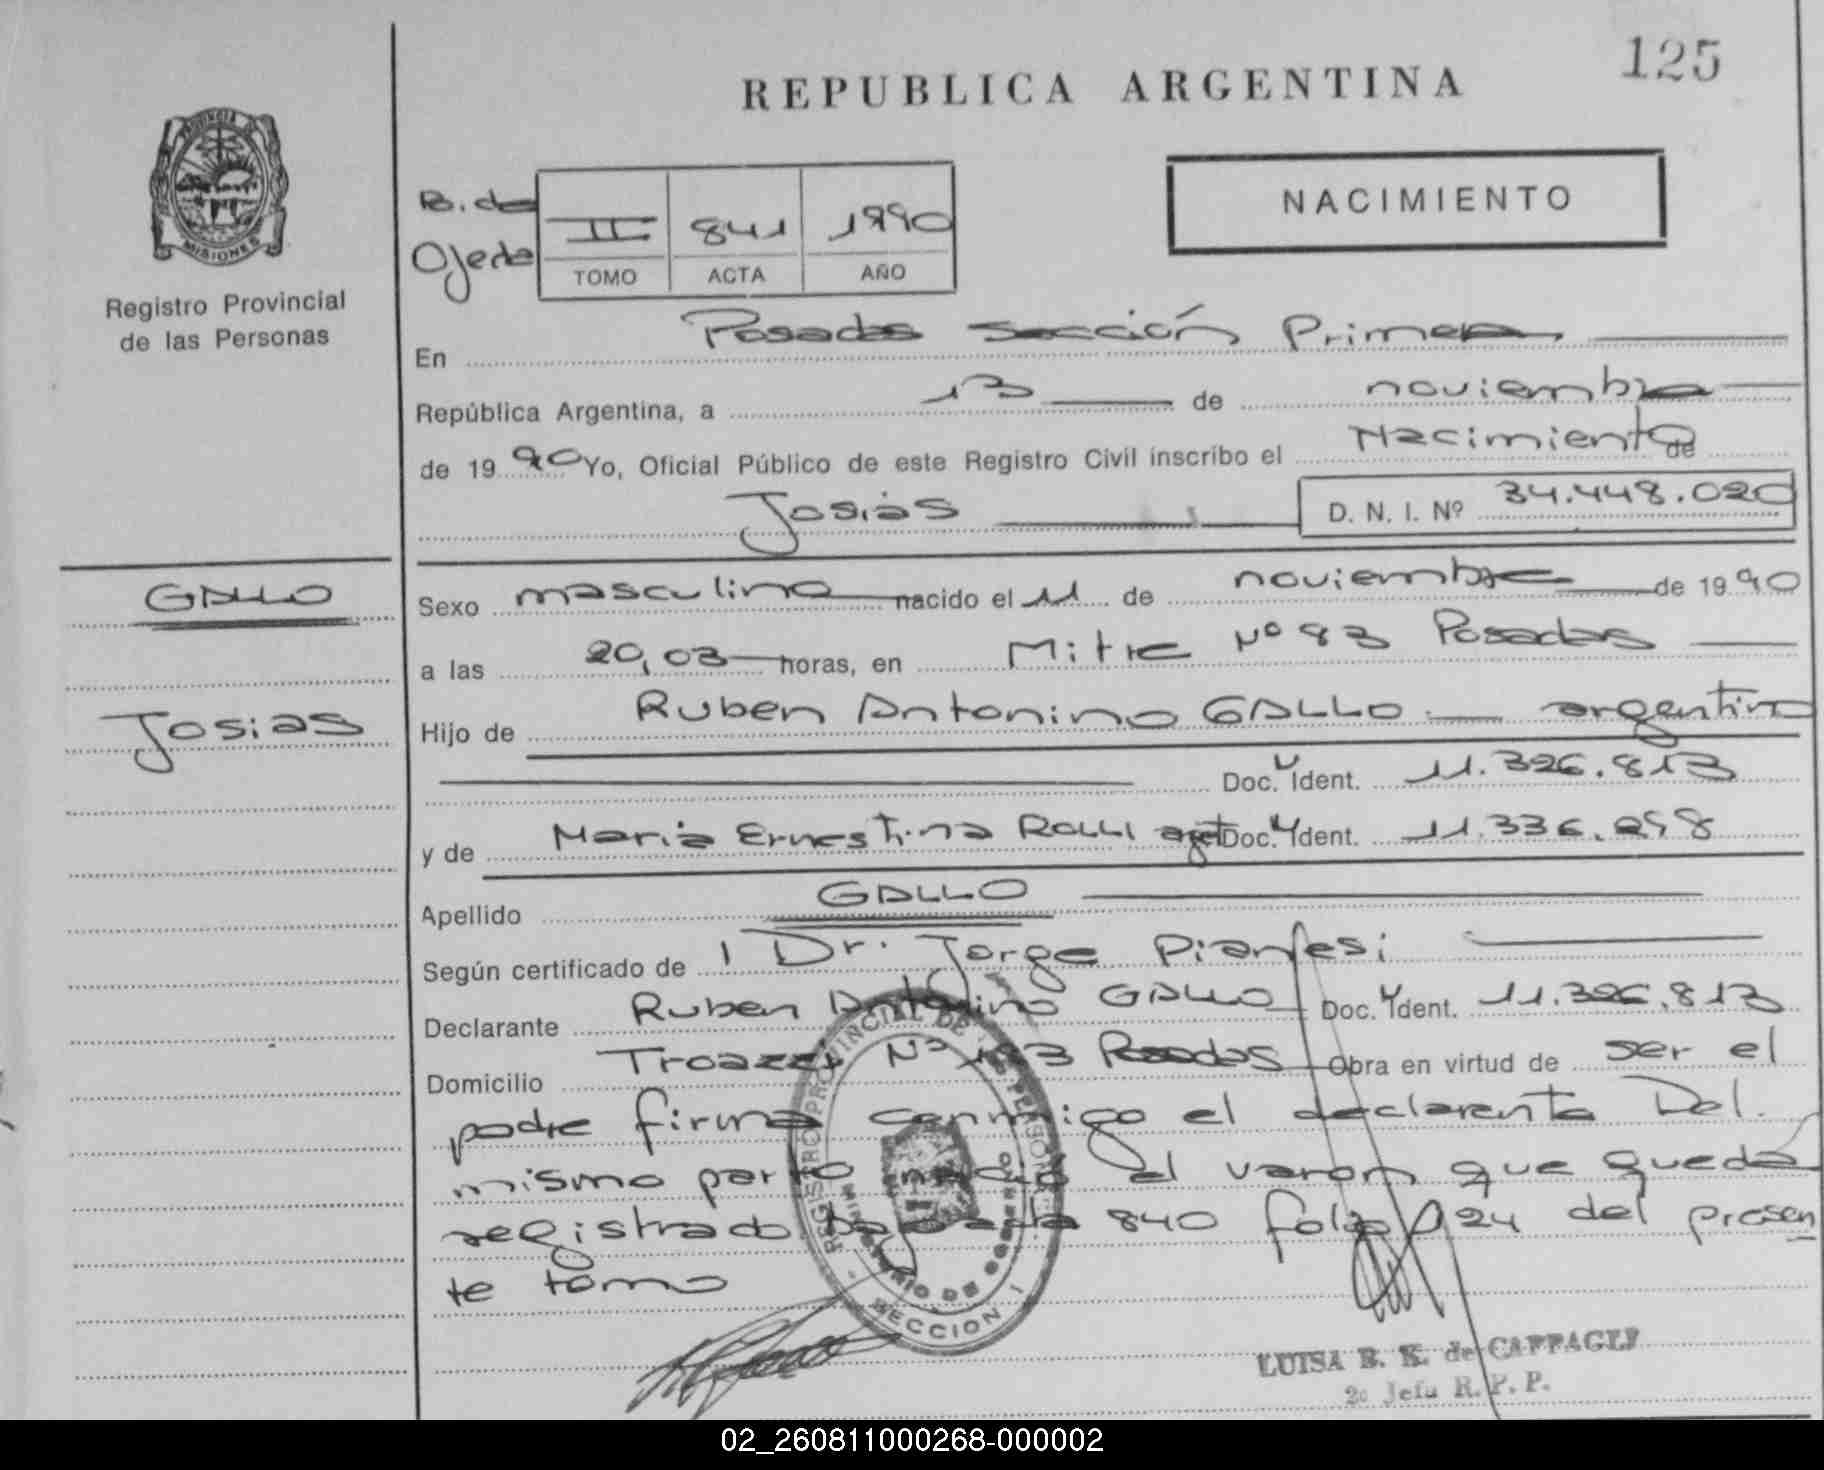 125
REPUBLICA ARGENTINA
PROVINCIA DE
MISIONES
Registro Provincial
de las Personas
B. de
Ojeda
II 841 1990
TOMO ACTA AÑO
NACIMIENTO
En Posadas Sección Primera
República Argentina, a 13 de noviembre
de 1990 Yo, Oficial Público de este Registro Civil inscribo el Nacimiento de
Josias D. N. I. Nº 34.448.020
GALLO
Josias
Sexo masculino nacido el 11 de noviembre de 1990
a las 20,03 horas, en Mitre Nº 83 Posadas
Hijo de Ruben Antonino GALLO argentino
Doc. Ident. 11.326.813
y de Maria Ernestina Rolli Doc. Ident. 11.336.
Apellido GALLO
Según certificado de Dr. Jorge
Declarante Ruben Antonino GALLO Doc. Ident. 11.326.813
Domicilio Nº Posadas Obra en virtud de ser el
padre firma conmigo el declarante Del
mismo parto nació el varon que queda
registrado bajo acta 840 folio 124 del presen
te tomo
REGISTRO PROVINCIAL DE LAS PERSONAS
MINISTERIO DE GOBIERNO
SECCION I
LUISA B. K. de CAFFAGLI
2º Jefa R. P. P.
02_260811000268-000002